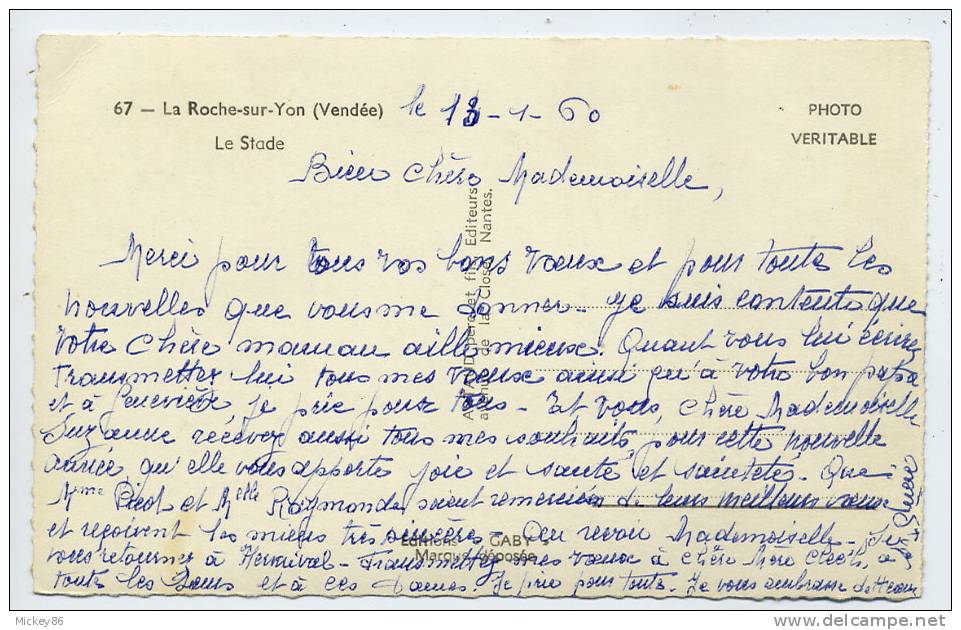 67 — La Roche-sur-Yon (Vendée) le 13-1-60
Le Stade
PHOTO
VERITABLE
Bien Chère Mademoiselle,
Merci pour tous vos bons vœux et pour toutes les
nouvelles que vous me donner. Je suis contente que
votre Chère maman aille mieux. Quant vous lui écrirez
Transmettez lui tous mes vœux ainsi qu'à votre bon papa
et à Geneviève, je prie pour tous - Et vous, Chère Mademoiselle
Suzanne recevez aussi tous mes souhaits pour cette nouvelle
année, qu'elle vous apporte joie et santé, et sainteté. Que
Mme et Melle Raymonde soient remerciées de leurs meilleurs vœux
et reçoivent les miens très sincères - Au revoir Mademoiselle - Si
vous retournez à transmettez mes vœux à Chère Mère à
toutes les Sœurs et à ces Dames. Je prie pour toutes. Je vous embrasse de
Editeurs
Nantes.
Editions GABY
Marque déposée
Mickey86
www.delcampe.net